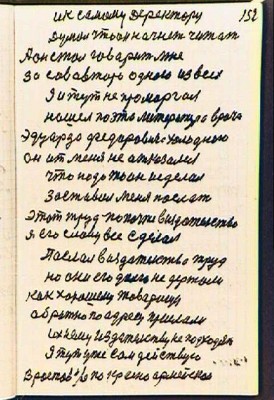 152
ик самому деректору
думал что он начнет читат
А он стал говарит мне
за совавтора одного из всех
Я и тут не проморгал
нашел поэта литератора врача
Эдуарда федаровича холодною
Он от меня не атказался
что подо тож не делал
Заставил меня послат
Этот труд по почте виздателство
я его слову все сделал
Паслал виздателство труд
но они его долго не держали
как хорошему товарищу
обратно по адресу прислали
ихнему Издателству не подходят
Я тут уже сам действую
В ростов по 1 красно армейская